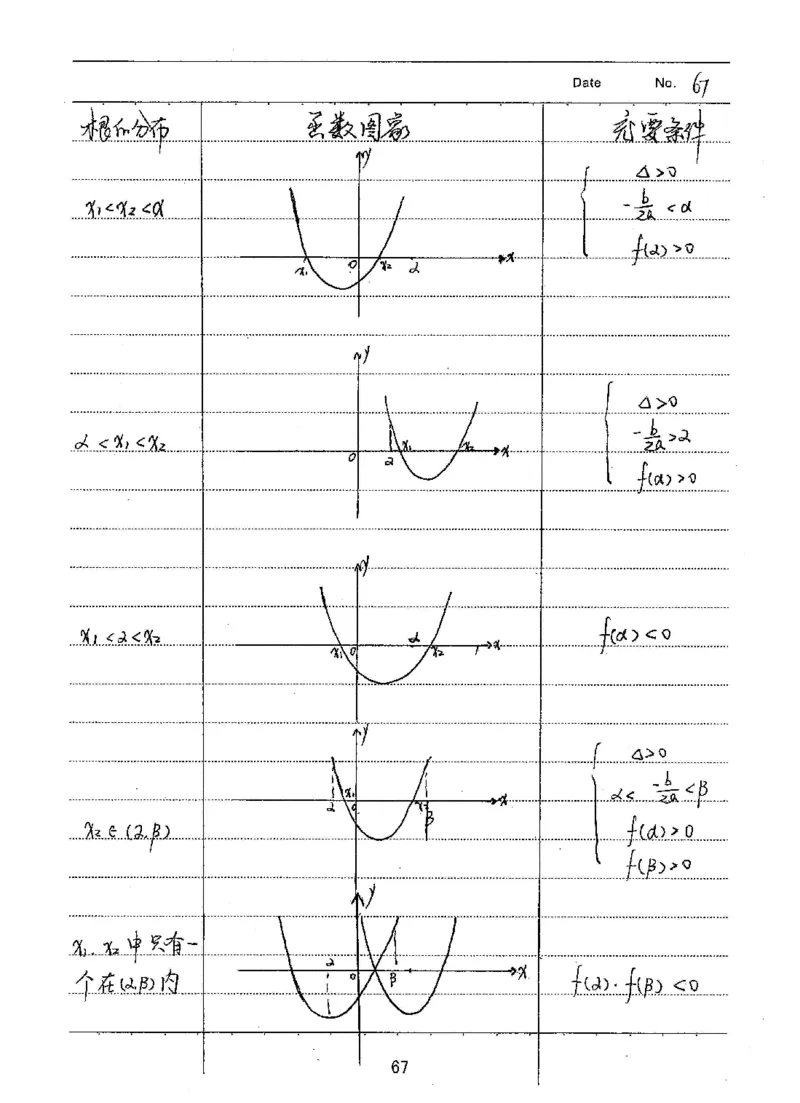 Date No. 67
根的分布 函数图象 充要条件
x₁<x₂<α
y
x₁ 0 x₂ α x
Δ>0
-b/2a <α
f(α)>0
α<x₁<x₂
y
0 α x₁ x₂ x
Δ>0
-b/2a >2
f(α)>0
x₁<α<x₂
y
x₁ 0 α x₂ x
f(α)<0
x₂∈(α,β)
y
α x₁ 0 x₂ β x
Δ>0
α< -b/2a <β
f(α)>0
f(β)>0
x₁、x₂中只有一
个在(α,β)内
y
α 0 β x
f(α)·f(β)<0
67